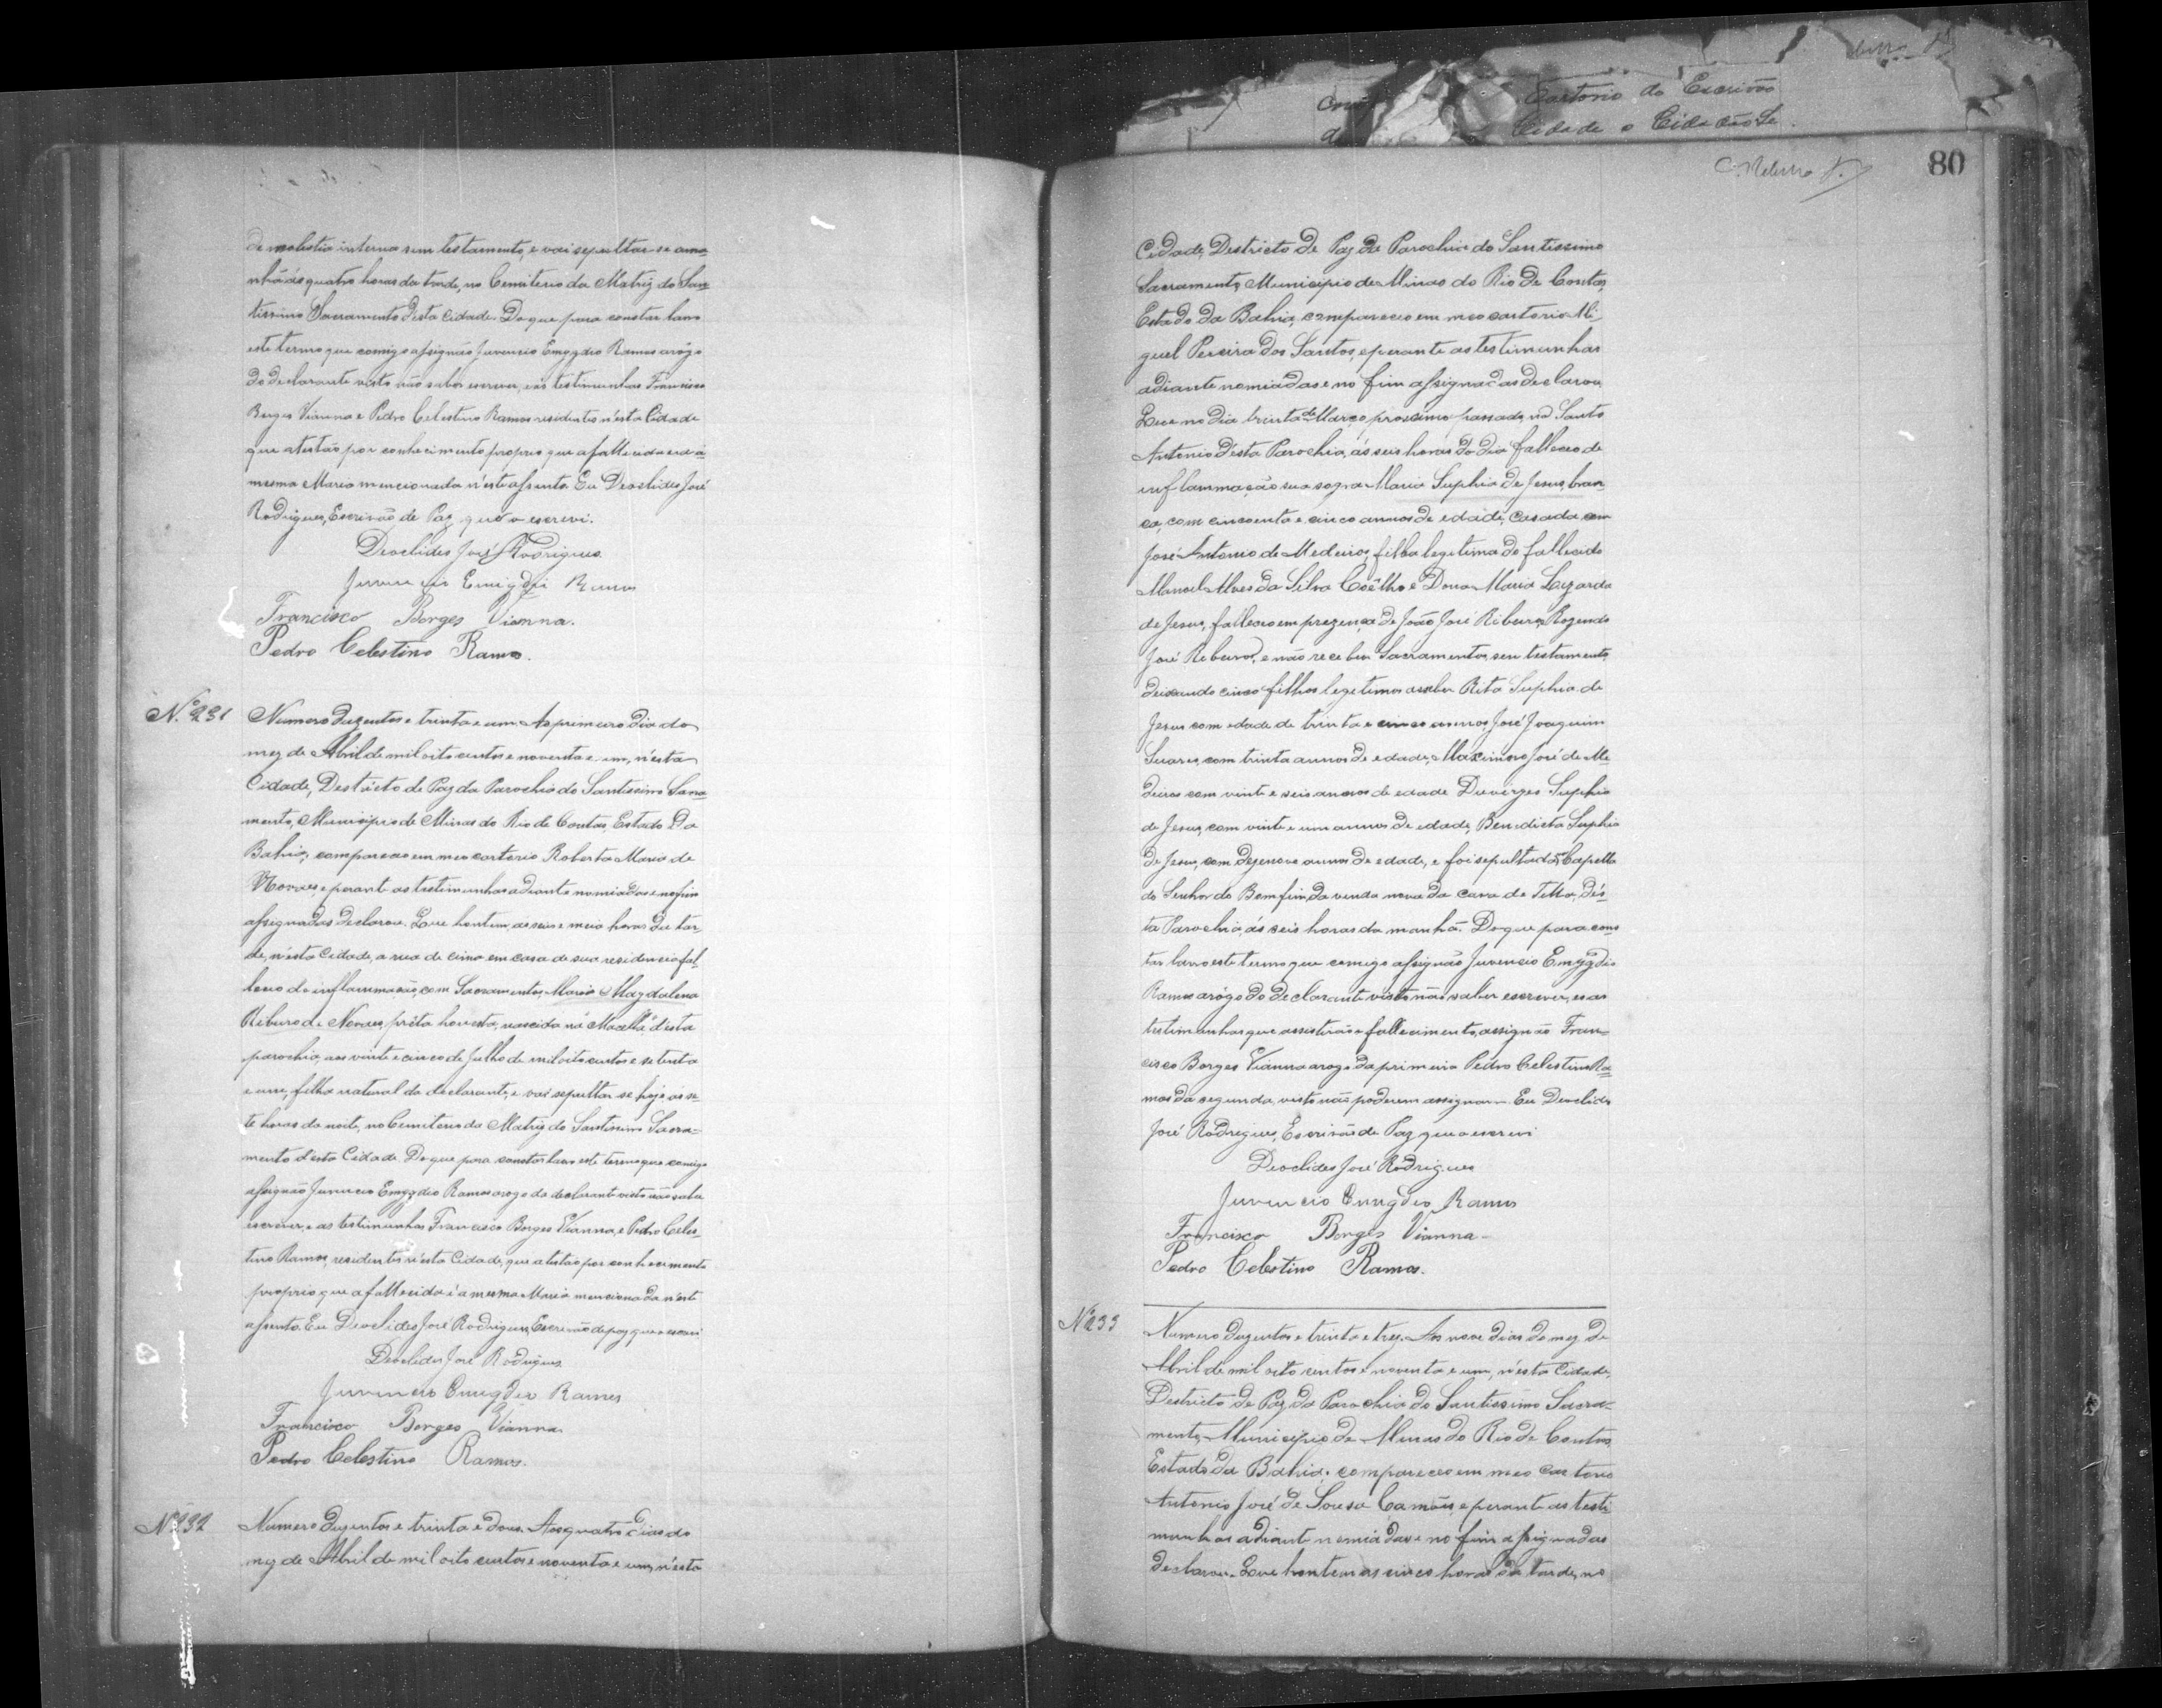 de molestia interna sem testamento, e vai sepultar-se ama-
nhã ás quatro horas da tarde, no Cemiterio da Matriz do San-
tissimo Sacramento desta Cidade. Do que para constar lavro
este termo que comigo assignão Juvencio Emygdio Ramos arôgo
do declarante visto não saber escrever, e as testimunhas Francisco
Borges Vianna e Pedro Celestino Ramos residentes n'esta Cidade
que atestão por conhecimento proprio que a fallecida é a
mesma Maria mencionada n'este assento. Eu Deoclides José
Rodrigues, Escrivão de Paz, que o escrevi.
Deoclides José Rodrigues
Juvencio Emigdio Ramos
Francisco Borges Vianna.
Pedro Celestino Ramos.
Nº 231
Numero duzentos e trinta e um. Ao primeiro dia do
mez de Abril de mil oito centos e noventa e um, n'esta
Cidade, Destricto de Paz da Parochia do Santissimo Sacra-
mento, Municipio de Minas do Rio de Contas, Estado Da
Bahia; compareceo em meo cartorio Roberta Maria de
Novaes e perante as testimunhas adiante nomiadas e no fim
assignadas declarou. Que hontem, as seis e meia horas da tar-
de, n'esta Cidade, a rua de cima em casa de sua residencia fal-
leceo de inflammação, com Sacramentos, Maria Magdalena
Ribeiro de Novaes, prêta honesta, nascida na desta
parochia, aos vinte e cinco de Julho de mil oito centos e setenta
e um, filha natural da declarante, e vai sepultar-se hoje as se-
te horas da noite, no Cemiterio da Matriz do Santissimo Sacra-
mento d'esta Cidade. Do que para constar lavro este termo que comigo
assignão Juvencio Emygdio Ramos arogo da declarante visto não saber
escrever, e as testimunhas Francisco Borges Vianna, e Pedro Celes-
tino Ramos, residentes n'esta Cidade, que atestão por conhecimento
proprio que a fallecida é a mesma Maria mencionada n'este
assento. Eu Deoclides José Rodrigues, Escrivão de paz, que o escrevi
Deoclides José Rodrigues
Juvencio Emygdio Ramos
Francisco Borges Vianna.
Pedro Celestino Ramos.
Nº 232
Numero duzentos e trinta e dous. Aos quatro dias do
mez de Abril de mil oito centos e noventa e um, n'esta
Cartorio do Escrivão
Cidade o Cidadão
80
Cidade, Destricto de Paz da Parochia do Santissimo
Sacramento, Municipio de Minas do Rio de Contas,
Estado da Bahia, compareceo em meo cartorio Mi-
guel Pereira dos Santos, e perante as testimunhas
adiante nomiadas e no fim assignadas declarou
Que no dia trinta de Março proximo passado, no Santo
Antonio désta Parochia, ás seis horas do dia falleceo de
inflammação sua sogra Maria Suphia de Jesus, bran-
ca, com cincoenta e cinco annos de edade, casada com
José Antonio de Medeiros, filha legitima do fallecido
Manoel Alves da Silva Coêlho e Dona Maria Lizarda
de Jesus, falleceo em prezença de João José Ribeiro, Rozendo
José Ribeiro, e não recebeu Sacramentos, sem testamento,
deixando cinco filhos legitimos a saber Rita Suphia de
Jesus com edade de trinta e cinco annos, José Joaquim
Suares, com trinta annos de edade, Maximno José de Me-
deiros com vinte e seis annos de edade Duvirges Suphia
de Jesus, com vinte e um annos de edade, Benedicta Suphia
de Jesus, com dezenove annos de edade, e foi sepultada na Capella
do Senhor do Bomfim, da venda nova da Cana de Tella, dés-
ta Parochia, ás seis horas da manhã. Do que para cons-
tar lavro este termo que comigo assignão Juvencio Emygdio
Ramos arôgo do declarante visto não saber escrever, e as
testimunhas que assistirão o fallecimento, assignão Fran-
cisco Borges Vianna arogo da primeira Pedro Celestino Ra-
mos da segunda, visto não poderem assignar. Eu Deoclides
José Rodrigues, Escrivão de Paz, que o escrevi
Deoclides José Rodrigues
Juvencio Emygdio Ramos
Francisco Borges Vianna-
Pedro Celestino Ramos.
Nº 233
Numero duzentos e trinta e trez. Aos nove dias do mez de
Abril de mil oito centos e noventa e um, n'esta Cidade,
Destricto de Paz da Parochia do Santissimo Sacra-
mento, Municipio de Minas do Rio de Contas
Estado da Bahia; compareceo em meo Cartorio
Antonio José de Sousa Camões, e perante as testi-
munhas adiante nomiadas e no fim assignadas
declarou. Que hontem as cinco horas da tarde, no